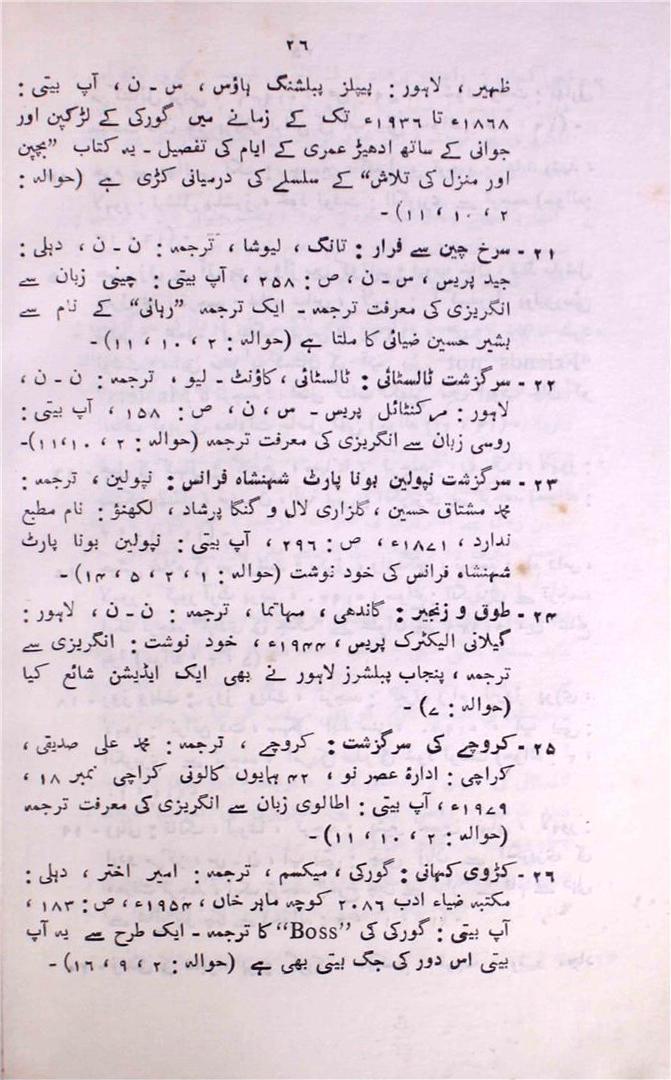 ۲۶
ظہیر ، لاہور : پیپلز پبلشنگ ہاؤس ، س - ن ، آپ بیتی :
۱۸۶۸ء تا ۱۹۳۶ء تک کے زمانے میں گورکی کے لڑکپن اور
جوانی کے ساتھ ادھیڑ عمری کے ایام کی تفصیل - یہ کتاب ”بچپن
اور منزل کی تلاش“ کے سلسلے کی درمیانی کڑی ہے (حوالہ :
۲ ، ۱۰ ، ۱۱) -
۲۱ - سرخ چین سے فرار : تانگ ، لیوشا ، ترجمہ : ن - ن ، دہلی :
جید پریس ، س - ن ، ص : ۲۵۸ ، آپ بیتی : چینی زبان سے
انگریزی کی معرفت ترجمہ - ایک ترجمہ ”رہائی“ کے نام سے
بشیر حسین ضیائی کا ملتا ہے (حوالہ : ۲ ، ۱۰ ، ۱۱) -
۲۲ - سرگزشت ٹالسٹائی : ٹالسٹائی ، کاؤنٹ - لیو ، ترجمہ : ن - ن ،
لاہور : مرکنٹائل پریس - س ، ن ، ص : ۱۵۸ ، آپ بیتی :
روسی زبان سے انگریزی کی معرفت ترجمہ (حوالہ : ۲ ، ۱۰ ، ۱۱)-
۲۳ - سرگزشت نپولین بونا پارٹ شہنشاہ فرانس : نپولین ، ترجمہ :
محمد مشتاق حسین ، گلزاری لال و گنگا پرشاد ، لکھنؤ : نام مطبع
ندارد ، ۱۸۷۱ء ، ص : ۲۹۶ ، آپ بیتی : نپولین بونا پارٹ
شہنشاہ فرانس کی خود نوشت (حوالہ : ۱ ، ۲ ، ۵ ، ۱۴) -
۲۴ - طوق و زنجیر : گاندھی ، مہاتما ، ترجمہ : ن - ن ، لاہور :
گیلانی الیکٹرک پریس ، ۱۹۴۴ء ، خود نوشت : انگریزی سے
ترجمہ ، پنجاب پبلشرز لاہور نے بھی ایک ایڈیشن شائع کیا
(حوالہ : ۷) -
۲۵ - کروچے کی سرگزشت : کروچے ، ترجمہ : محمد علی صدیقی ،
کراچی : ادارۂ عصر نو ، ۴۲ ہمایوں کالونی کراچی نمبر ۱۸ ،
۱۹۷۹ء ، آپ بیتی : اطالوی زبان سے انگریزی کی معرفت ترجمہ
(حوالہ : ۲ ، ۱۰ ، ۱۱) -
۲۶ - کڑوی کہانی : گورکی ، میکسم ، ترجمہ : امیر اختر ، دہلی :
مکتبہ ضیاء ادب ۲۰۸۶ کوچہ ماہر خاں ، ۱۹۵۴ء ، ص : ۱۸۳ ،
آپ بیتی : گورکی کی “Boss” کا ترجمہ - ایک طرح سے یہ آپ
بیتی اس دور کی جگ بیتی بھی ہے (حوالہ : ۲ ، ۹ ، ۱۶) -